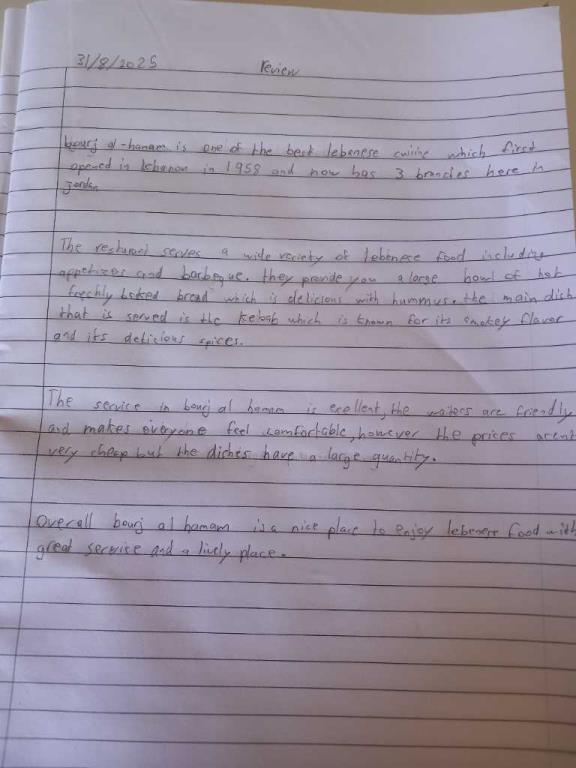 31/8/2025 review
bourj al-hamam is one of the best lebenese cuisine which first
opened in lebanon in 1958 and now has 3 branches here in
jordan
The resturant serves a wide variety of lebenese food including
appetizes and barbeque. they provide you a large bowl of hot
freechly baked bread which is delicious with hummus. the main dish
that is served is the kebab which is known for its smokey flavor
and its delicious spices.
The service in bourj al hamam is exellent, the waitors are friendly
and makes everyone feel comfortable, however the prices arent
very cheap but the diches have a large quantity.
Overall bourj al hamam is a nice place to enjoy lebenese food with
great service and a lively place.